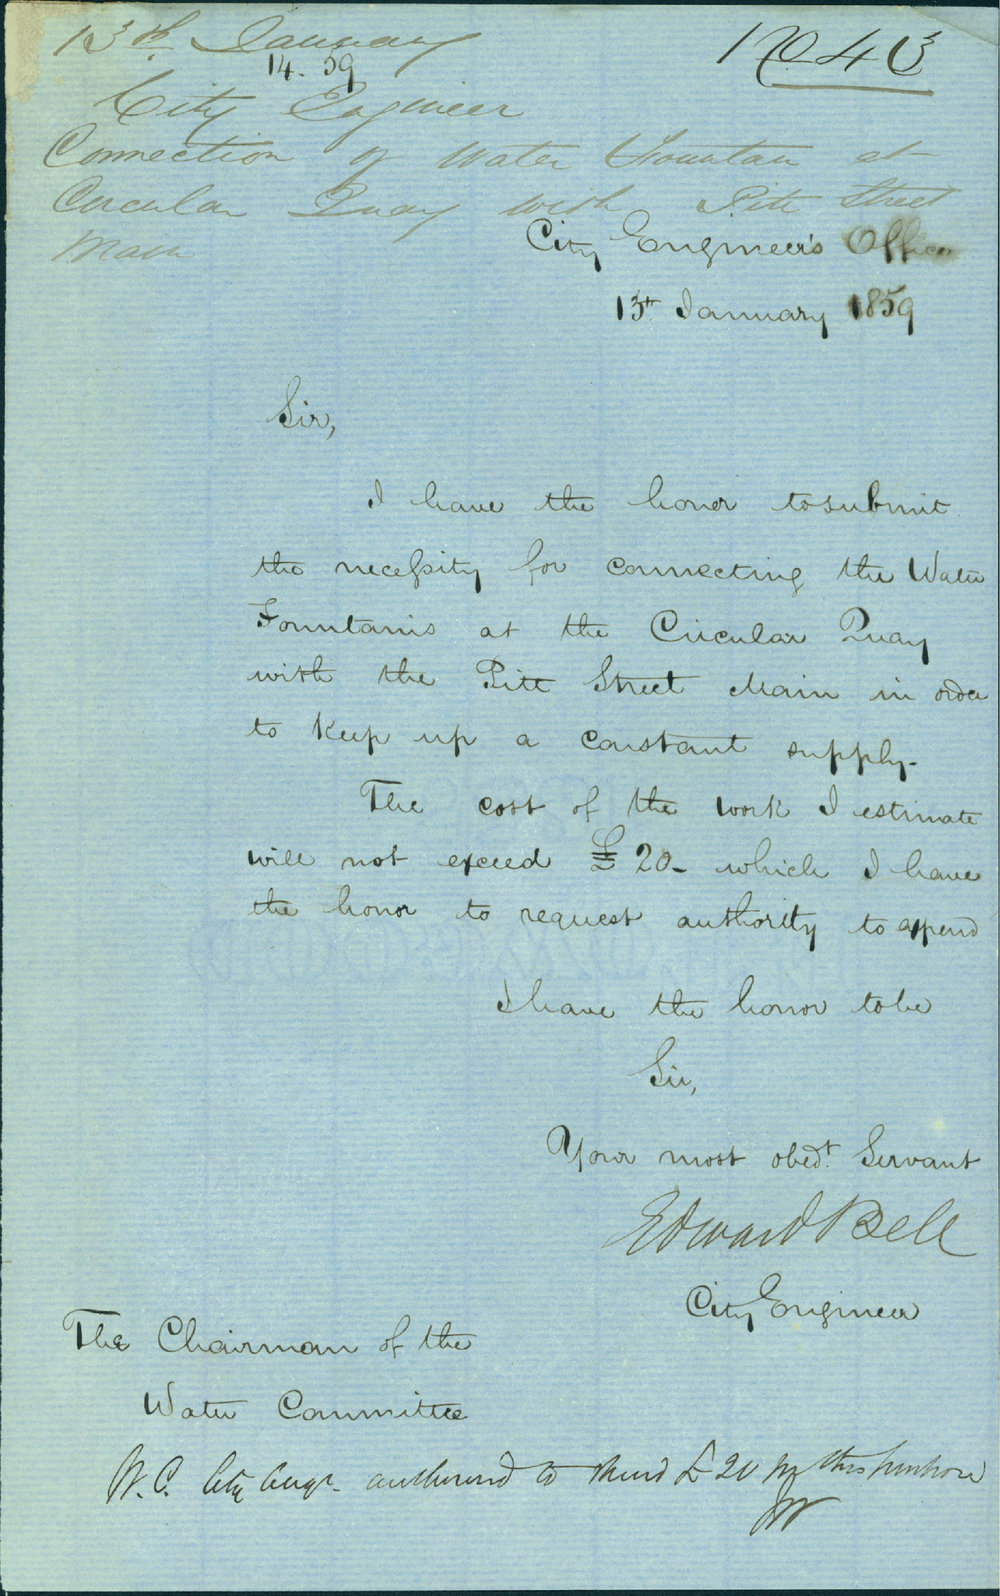 13th January
14. 59
City Engineer
Connection of Water Fountain at
Circular Quay with Pitt Street
Main
City Engineer's Office
13th January 1859
Sir,
I have the honor to submit
the necessity for connecting the Water
Fountains at the Circular Quay
with the Pitt Street Main in order
to keep up a constant supply-
The cost of the work I estimate
will not exceed £20- which I have
the honor to request authority to expend
I have the honor to be
Sir,
Your most obedt. Servant
Edward Bell
City Engineer
The Chairman of the
Water Committee
W.C. City Engr. authorized to expend £20 for this purpose